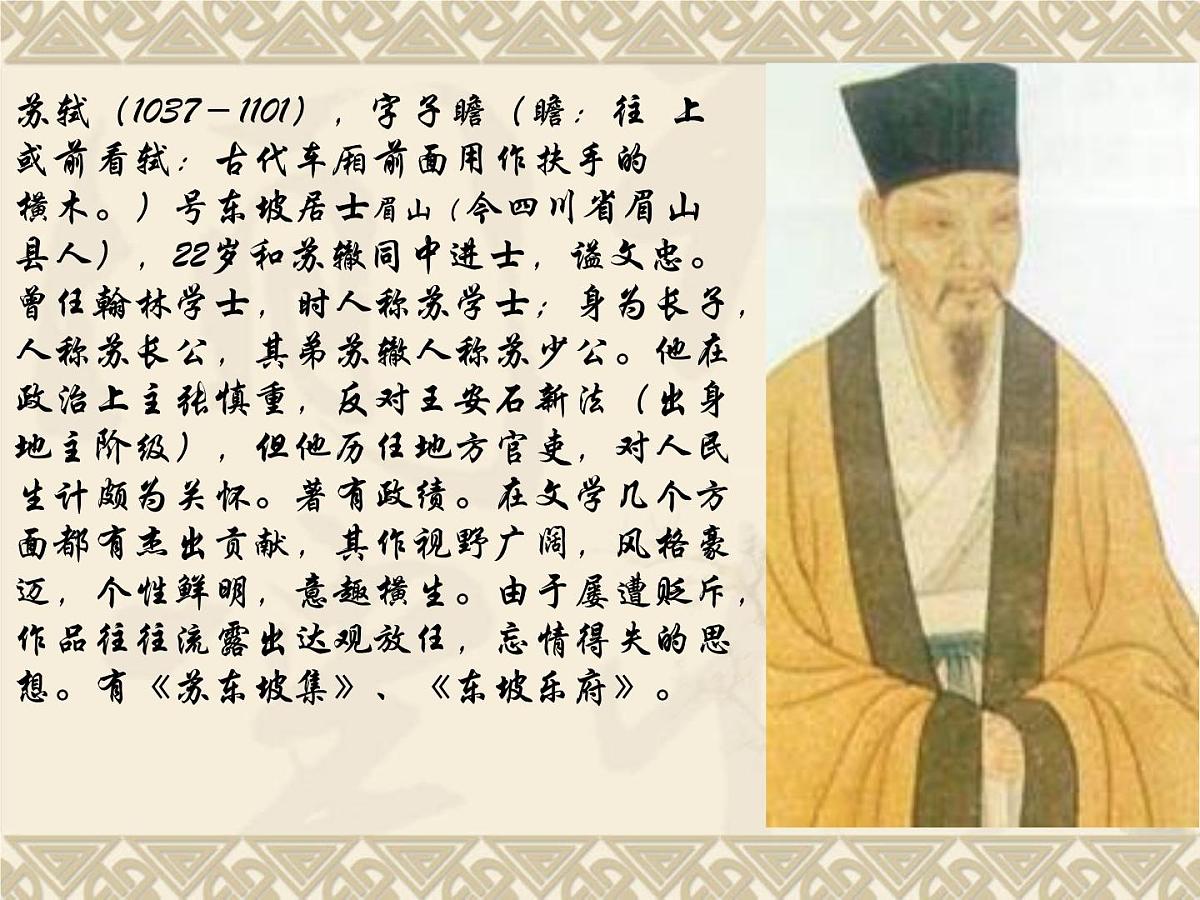 苏轼（1037－1101），字子瞻（瞻：往 上
或前看轼：古代车厢前面用作扶手的
横木。）号东坡居士眉山（今四川省眉山
县人），22岁和苏辙同中进士，谥文忠。
曾任翰林学士，时人称苏学士；身为长子，
人称苏长公，其弟苏辙人称苏少公。他在
政治上主张慎重，反对王安石新法（出身
地主阶级），但他历任地方官吏，对人民
生计颇为关怀。著有政绩。在文学几个方
面都有杰出贡献，其作视野广阔，风格豪
迈，个性鲜明，意趣横生。由于屡遭贬斥，
作品往往流露出达观放任，忘情得失的思
想。有《苏东坡集》、《东坡乐府》。